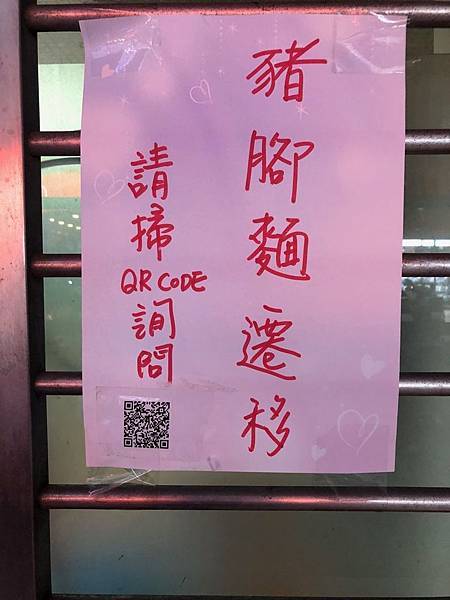 豬腳麵遷移
請掃QR CODE詢問